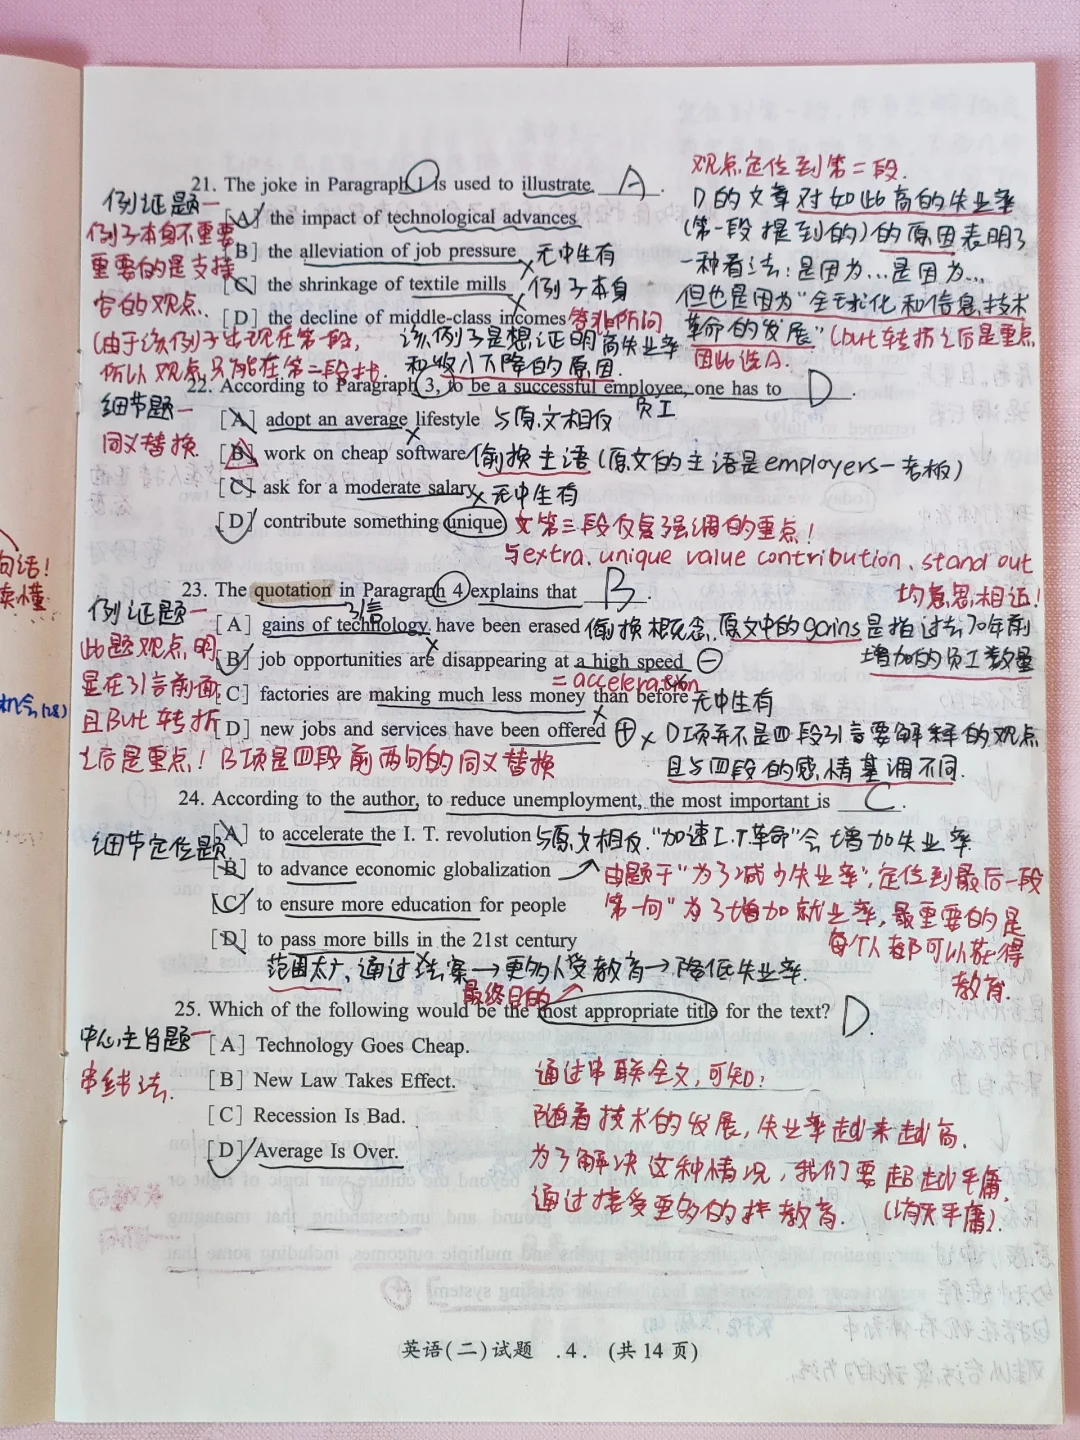 观点定位到第二段.
21. The joke in Paragraph 1 is used to illustrate A.
例证题一
D的文章对如此高的失业率
[A] the impact of technological advances
例子本身不重要
(第一段提到的)的原因表明了
[B] the alleviation of job pressure 无中生有
重要的是支持
一种看法:是因为...是因为...
[C] the shrinkage of textile mills 例子本身
容的观点.
但也是因为"全球化和信息技术
[D] the decline of middle-class incomes 答非所问
革命的发展"(but转折之后是重点
(由于该例子出现在第一段,
该例子是想证明高失业率
因此选A.
所以观点只能在第二段找.
和收入下降的原因.
22. According to Paragraph 3, to be a successful employee, one has to D
员工
细节题一
[A] adopt an average lifestyle 与原文相反
同义替换.
[B] work on cheap software 偷换主语(原文的主语是employers一老板)
[C] ask for a moderate salary 无中生有
[D] contribute something unique 文第三段反复强调的重点!
与extra. unique value contribution. stand out
均意思相近!
23. The quotation in Paragraph 4 explains that B.
引言
例证题一
[A] gains of technology have been erased 偷换概念.原文中的gains是指过去70年前
增加的员工数量
此题观点,明
[B] job opportunities are disappearing at a high speed ⊖
= acceleration
显在引言前面
[C] factories are making much less money than before 无中生有
且But转折
[D] new jobs and services have been offered ⊕ × D项并不是四段引言要解释的观点
之后是重点! B项是四段前两句的同义替换
且与四段的感情基调不同.
24. According to the author, to reduce unemployment, the most important is C.
细节定位题
[A] to accelerate the I. T. revolution 与原文相反."加速I.T.革命"会增加失业率
[B] to advance economic globalization
由题干"为了减少失业率",定位到最后一段
[C] to ensure more education for people
第一句"为了增加就业率,最重要的是
[D] to pass more bills in the 21st century
每个人都可以获得
教育.
范围太广,通过法案→更多人受教育→降低失业率.
最终目的
25. Which of the following would be the most appropriate title for the text? D.
中心主旨题一
[A] Technology Goes Cheap.
串线法.
[B] New Law Takes Effect.
通过串联全文,可知:
[C] Recession Is Bad.
随着技术的发展,失业率越来越高.
[D] Average Is Over.
为了解决这种情况,我们要超越平庸,
通过接受更多的教育.
(消灭平庸).
句话!
读懂
机会(28)
英语(二)试题 .4. (共14页)